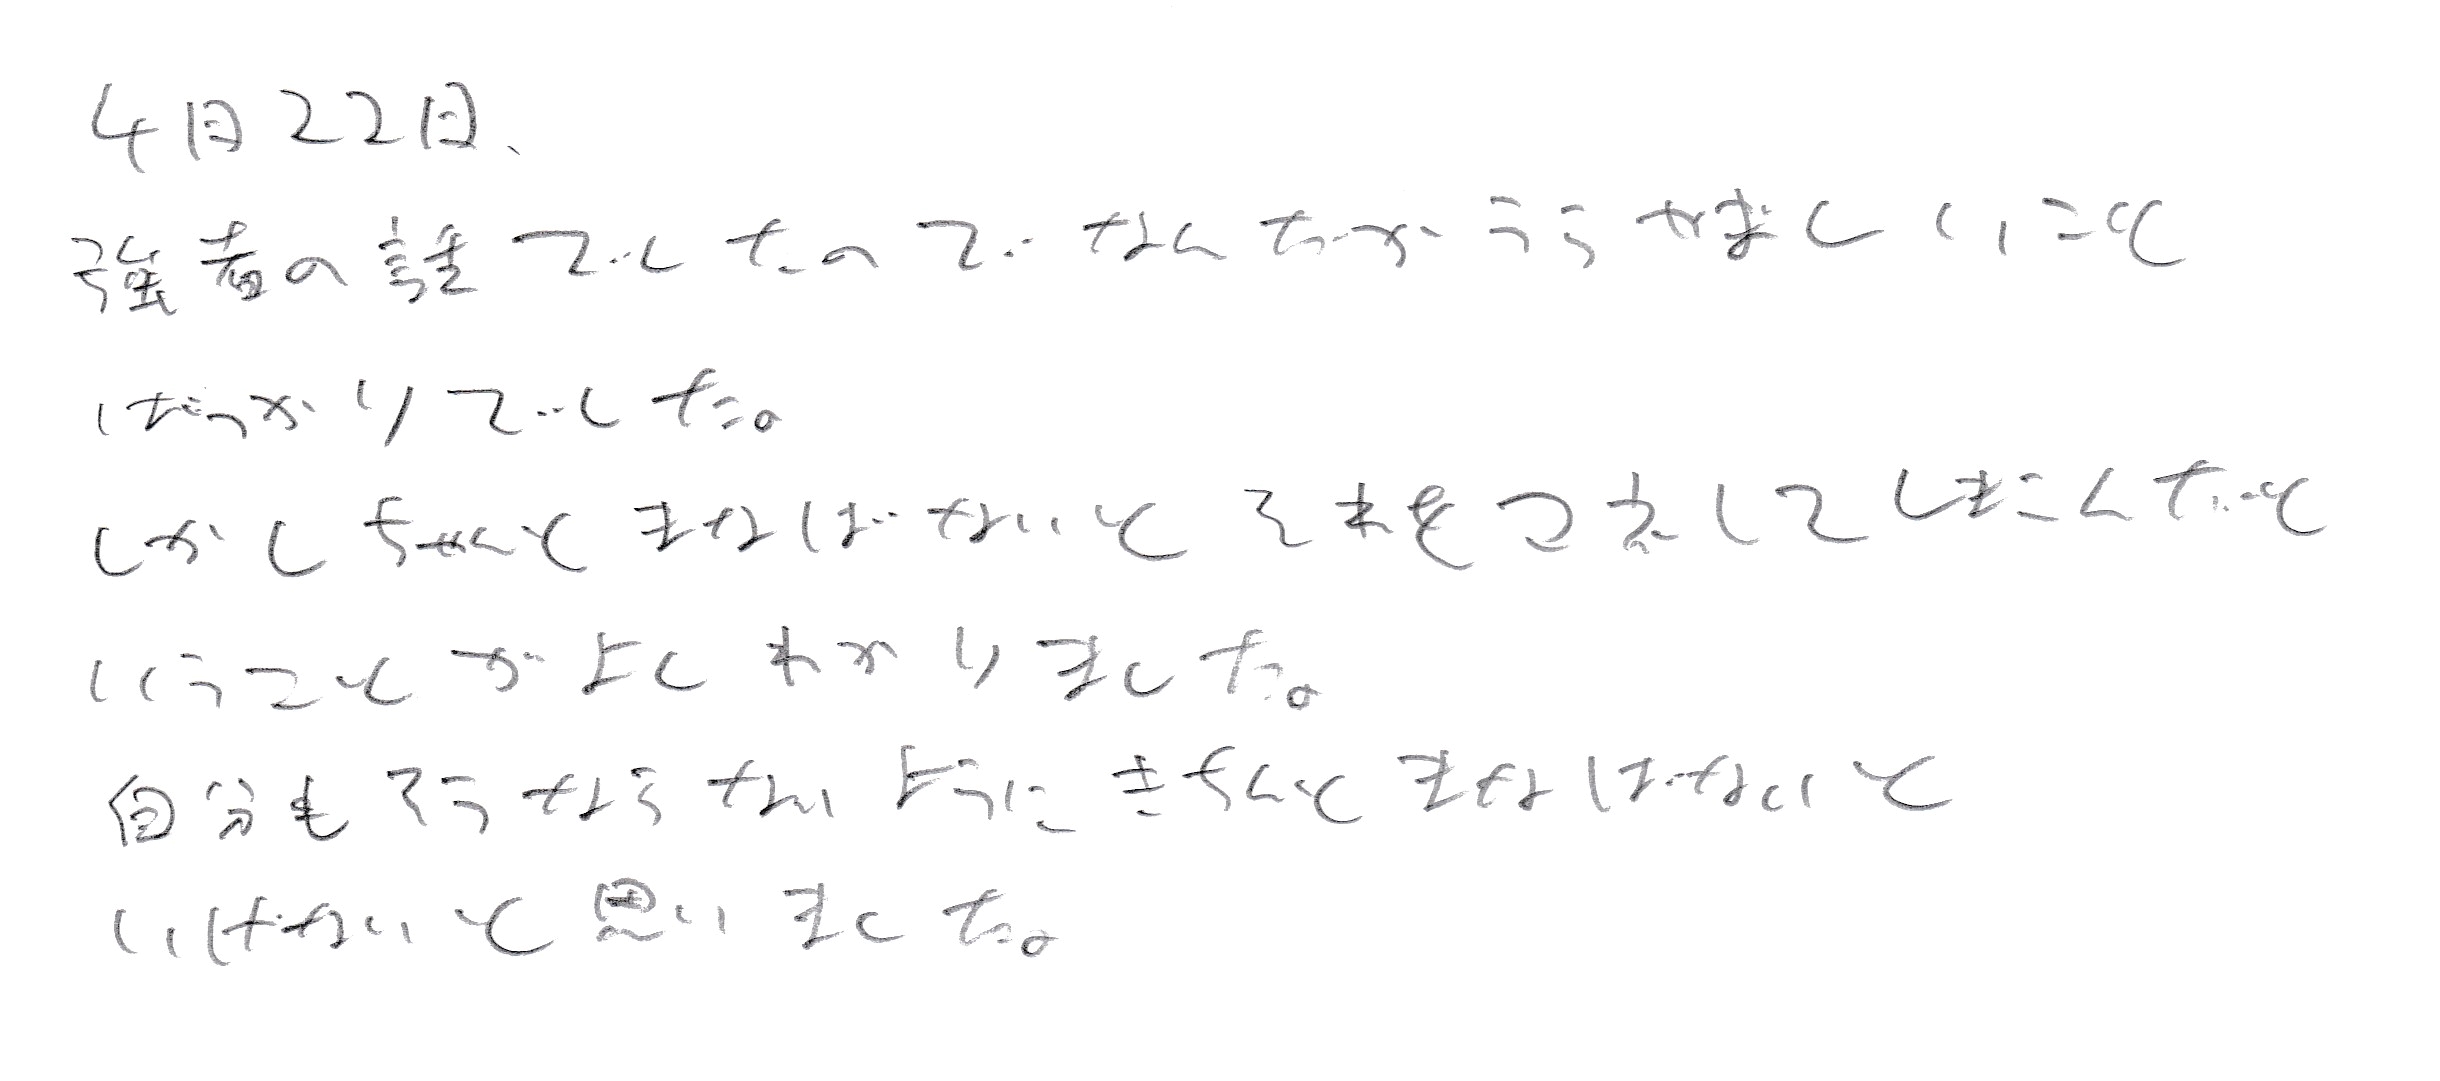 4月22日、
強者の話でしたのでなんだかうらやましいこと
ばっかりでした。
しかしちゃんとまなばないとそれをつぶしてしまうんだと
いうことがよくわかりました。
自分もそうならないようにきちんとまなばないと
いけないと思いました。